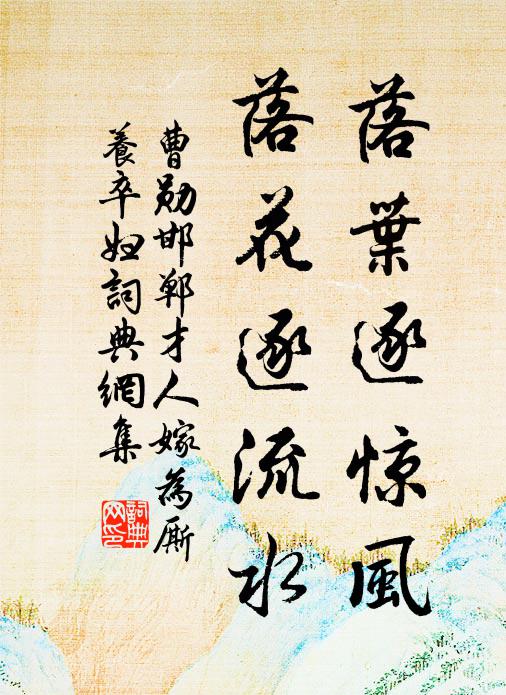 落葉逐惊風
落花逐流水
曹勋邯鄲才人嫁為厮
養卒婦詞典網集
詞典网印